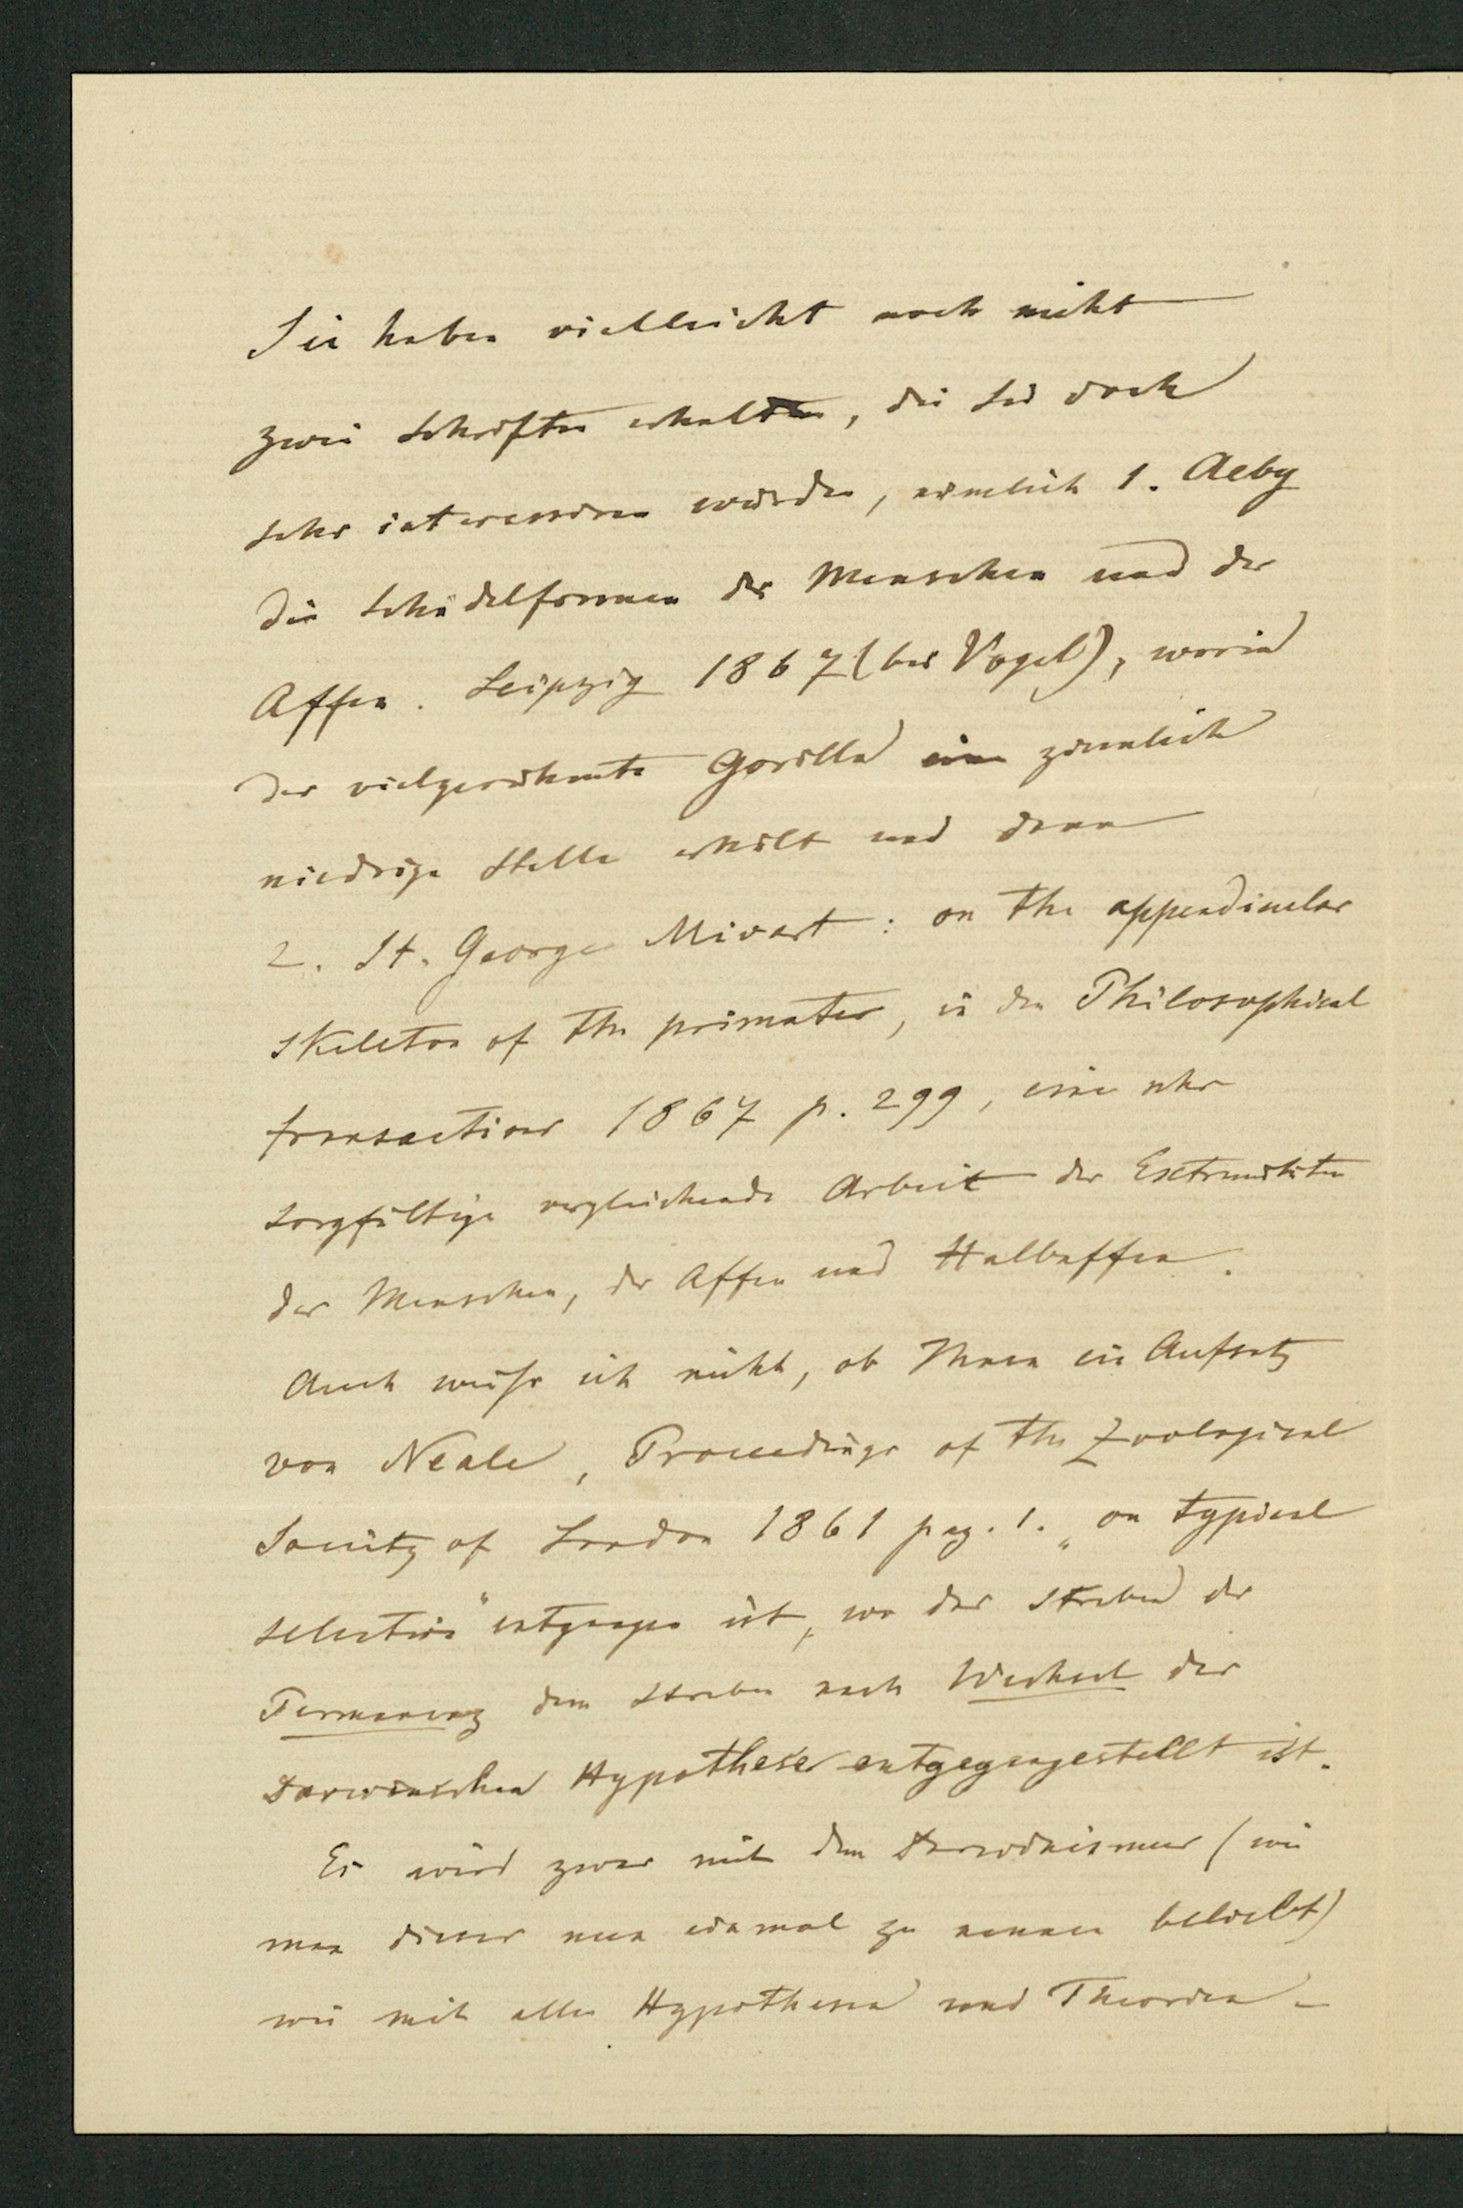 Sie haben vielleicht noch nicht
zwei Schriften erhalten, die Sie doch
sehr interessiren würden, nämlich 1. Aeby
die Schädelformen des Menschen und der
Affen. Leipzig 1867 (bei Vogel), worin
der vielgerühmte Gorilla eine ziemlich
niedrige Stelle erhält und dann
2. St. George Mivart: on the appendicular
skeleton of the primates, in den Philosophical
transactions 1867 p. 299, eine sehr
sorgfältige vergleichende Arbeit der Extremitäten
des Menschen, der Affen und Halbaffen.
Auch weiß ich nicht, ob Ihnen ein Aufsatz
von Neale, Proceedings of the Zoological
Society of London 1861 pag. 1. „on typical
selection“ entgangen ist, wo das Streben der
Permanenz dem Streben nach Wechsel der
Darwinschen Hypothese entgegengestellt ist.
Es wird zwar mit dem Darwinismus (wie
man dieses nun einmal zu nennen beliebt)
wie mit allen Hypothesen und Theorien